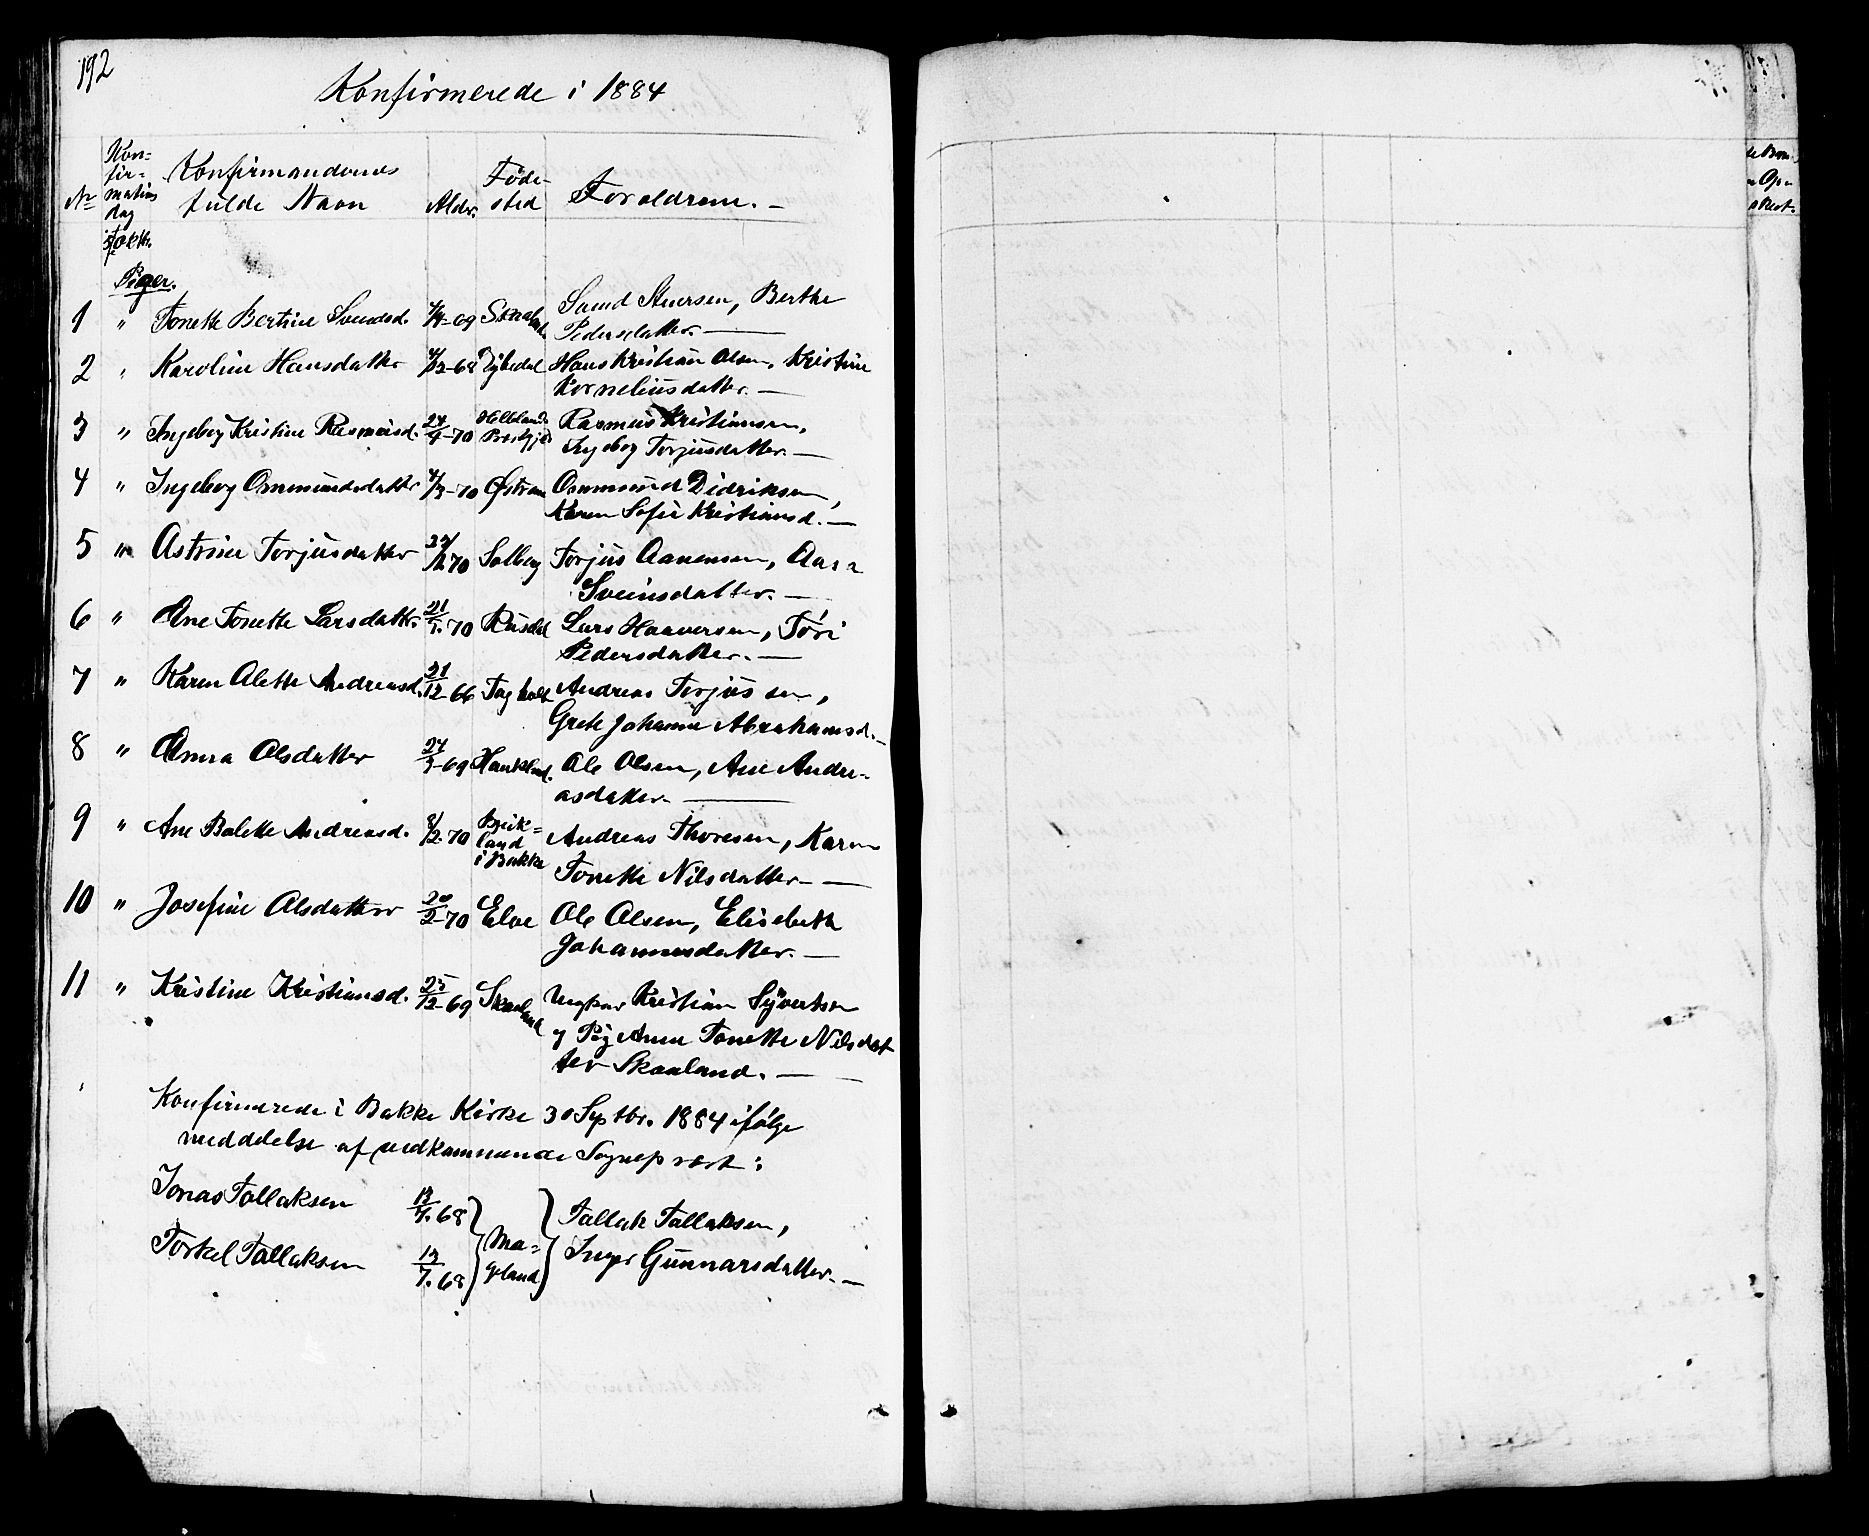 192
Konfirmerede i 1884
No
Kon=
fir=
mations
dag
Konfirmandernes
fulde Navn
Alder.
Føde-
sted
Forældrene. —
Piger.
1 " Tonette Bertine Svendsd. 69 Skaaland Svend Berthe
Pedersdatter. —
2 " Karoline Hansdatter 4/12-68 Hans Kristian Olsen, Kristine
Korneliusdatter. —
3 " Ingeborg Kristine Rasmusd. 24/4-70 Hellelands Præstgjld Rasmus Kristiansen,
Ingeborg Torjusdatter. —
4 " Ingeborg Ommundsdatter 4/3-70 Østrem Ommund Didriksen,
Karen Sofie Kristiansd. —
5 " Astrine Torjusdatter 70 Solberg Torjus Aanensen, Aasa
Sveinsdatter. —
6 " Ane Tonette Larsdatter. 21/1.70 Rusdal Lars Haaversen, Töri
Pedersdatter. —
7 " Karen Alette Andreasd. 21/12-66 Tagholt Andreas Torjussen,
Grete Johanne Abrahamsd. —
8 " Anna Olsdatter 69 Haukland. Ole Olsen, Ane Andre-
asdatter. —
9 " Ane Bolette Andreasd. 8/2-70 Breik=
land
i Bakke Andreas Thoresen, Karen
Tonette Nilsdatter —
10 " Josefine Olsdatter 20/2-70 Elve Ole Olsen, Elisabeth
Johannesdatter. —
11 " Kristine Kristiansd. 25/12-69 Skaaland Ungkar Kristian Syvertsen
og Pig Anne Tonette Nilsdat
ter Skaaland. —
Konfirmerede i Bakke Kirke 30 Septbr. 1884 ifølge
meddelelse af vedkommende Sogneprest:
Jonas Tallaksen 13/7.68 } Ma= } Tallak Tallaksen,
Torkel Tallaksen 13/7.68 } geland } Inger Gunnarsdatter. —